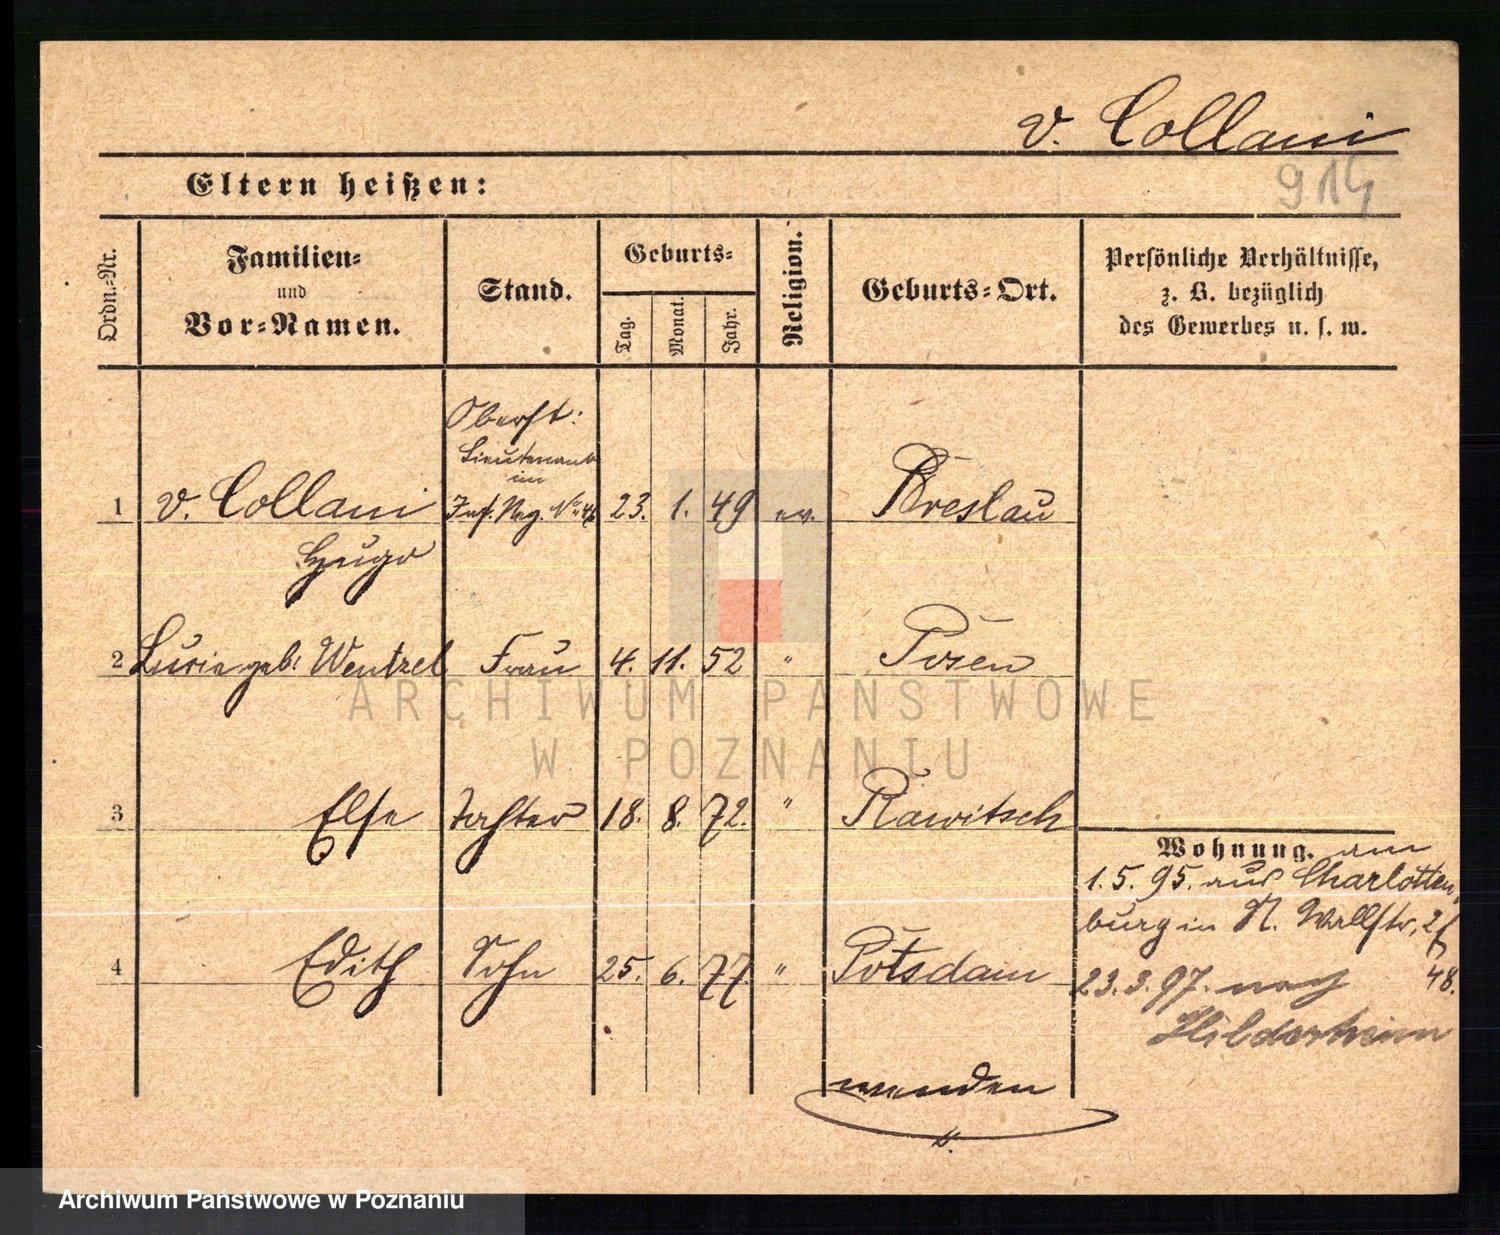 v. Collani
Eltern heißen:
914
Ordn.-Nr.
Familien-
und
Vor-Namen.
Stand.
Geburts-
Tag.
Monat.
Jahr.
Religion.
Geburts-Ort.
Persönliche Verhältnisse,
z. B. bezüglich
des Gewerbes u. s. w.
Oberst:
Lieutenant
im
1 v. Collani Inf. Reg. No 46 23. 1. 49 ev. Breslau
Hugo
2 Lucie geb. Wentzel Frau 4. 11. 52 " Posen
ARCHIWUM PAŃSTWOWE
W POZNANIU
3 Else Tochter 18. 8. 72. " Rawitsch
Wohnung. am
1. 5. 95. aus Charlotten
burg in N. Wallstr. 2
4 Edith Sohn 25. 6. 77. " Potsdam
23. 3. 97. nach 48.
Hildesheim
wenden
Archiwum Państwowe w Poznaniu